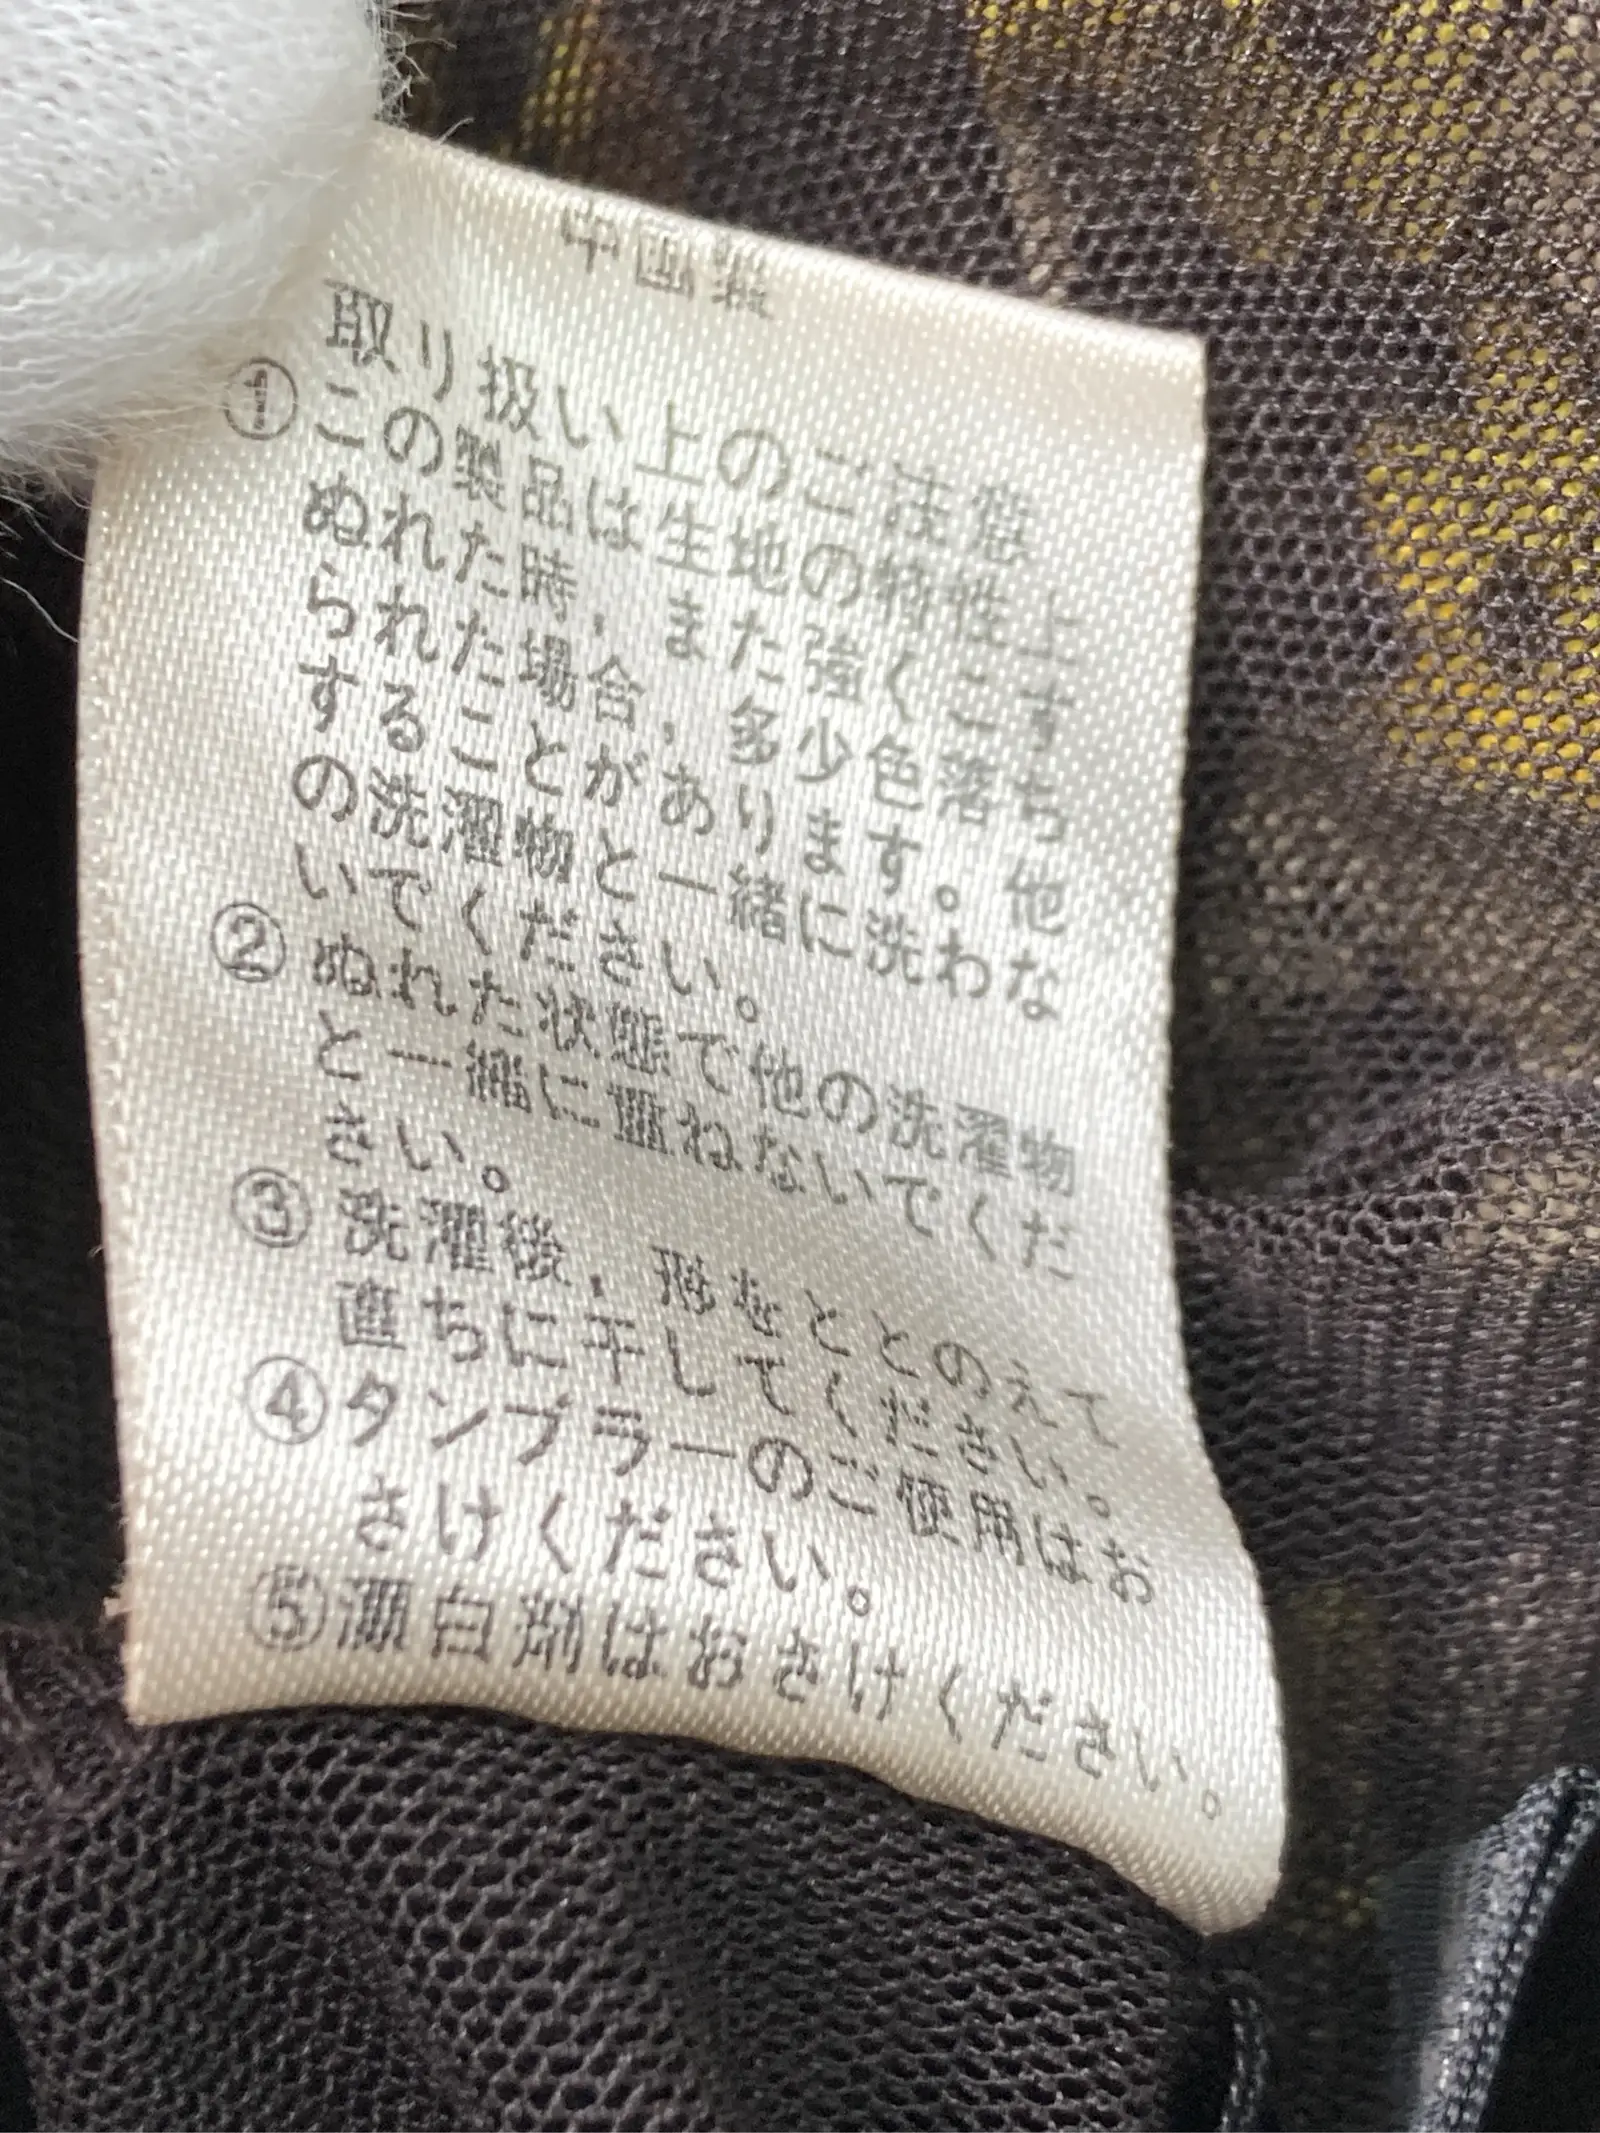 中国製
取り扱い上のご注意
①この製品は生地の特性上
ぬれた時，また強くこすら
られた場合，多少色落ち
することがあります。他
の洗濯物と一緒に洗わな
いでください。
②ぬれた状態で他の洗濯物
と一緒に重ねないでくだ
さい。
③洗濯後，形をととのえて
直ちに干してください。
④タンブラーのご使用はお
さけください。
⑤漂白剤はおさけください。